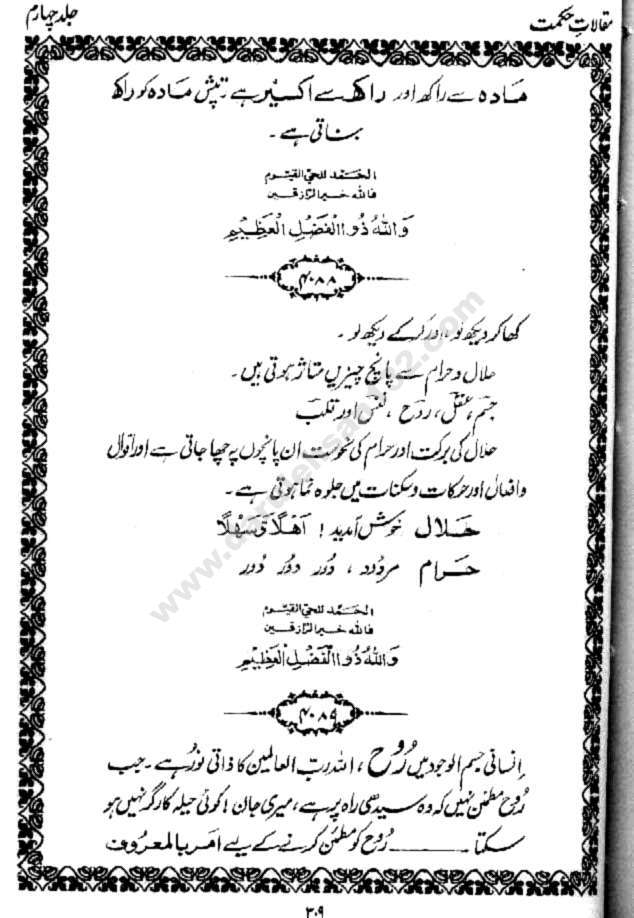 مقالاتِ حکمت
جلد چہارم
مَادہ سے راکھ اور راکھ سے اکسیر ہے۔ تپش مَادہ کو راکھ
بناتی ہے۔
الحَمد للحیّ القیّوم
فاللہ خیر الرّازقین
وَاللّٰہُ ذُوالْفَضْلِ الْعَظِیْمِ
۴۰۸۸
کھا کر دیکھ لو، اور کر کے دیکھ لو۔
حلال و حرام سے پانچ چیزیں متاثر ہوتی ہیں۔
جسم، عقل، روح، نفس اور قلب
حلال کی برکت اور حرام کی نحوست ان پانچوں پہ چھا جاتی ہے اور اقوال
و افعال اور حرکات و سکنات میں جلوہ نما ہوتی ہے۔
حَلال خوش آمدید! اَھْلًا وَّسَھْلًا
حَرام مردُود، دُور دُور دُور
الحَمد للحیّ القیّوم
فاللہ خیر الرّازقین
وَاللّٰہُ ذُوالْفَضْلِ الْعَظِیْمِ
۴۰۸۹
اِنسانی جسم الوجود میں رُوح، اللہ ربّ العالمین کا ذاتی نُور ہے۔ جب
رُوح مطمئن نہیں کہ وہ سیدھی راہ پر ہے، میری جان! کوئی حیلہ کارگر نہیں ہو
سکتا۔ ـــــــــ رُوح کو مطمئن کرنے کے لیے امر بالمعروف
۳۰۹